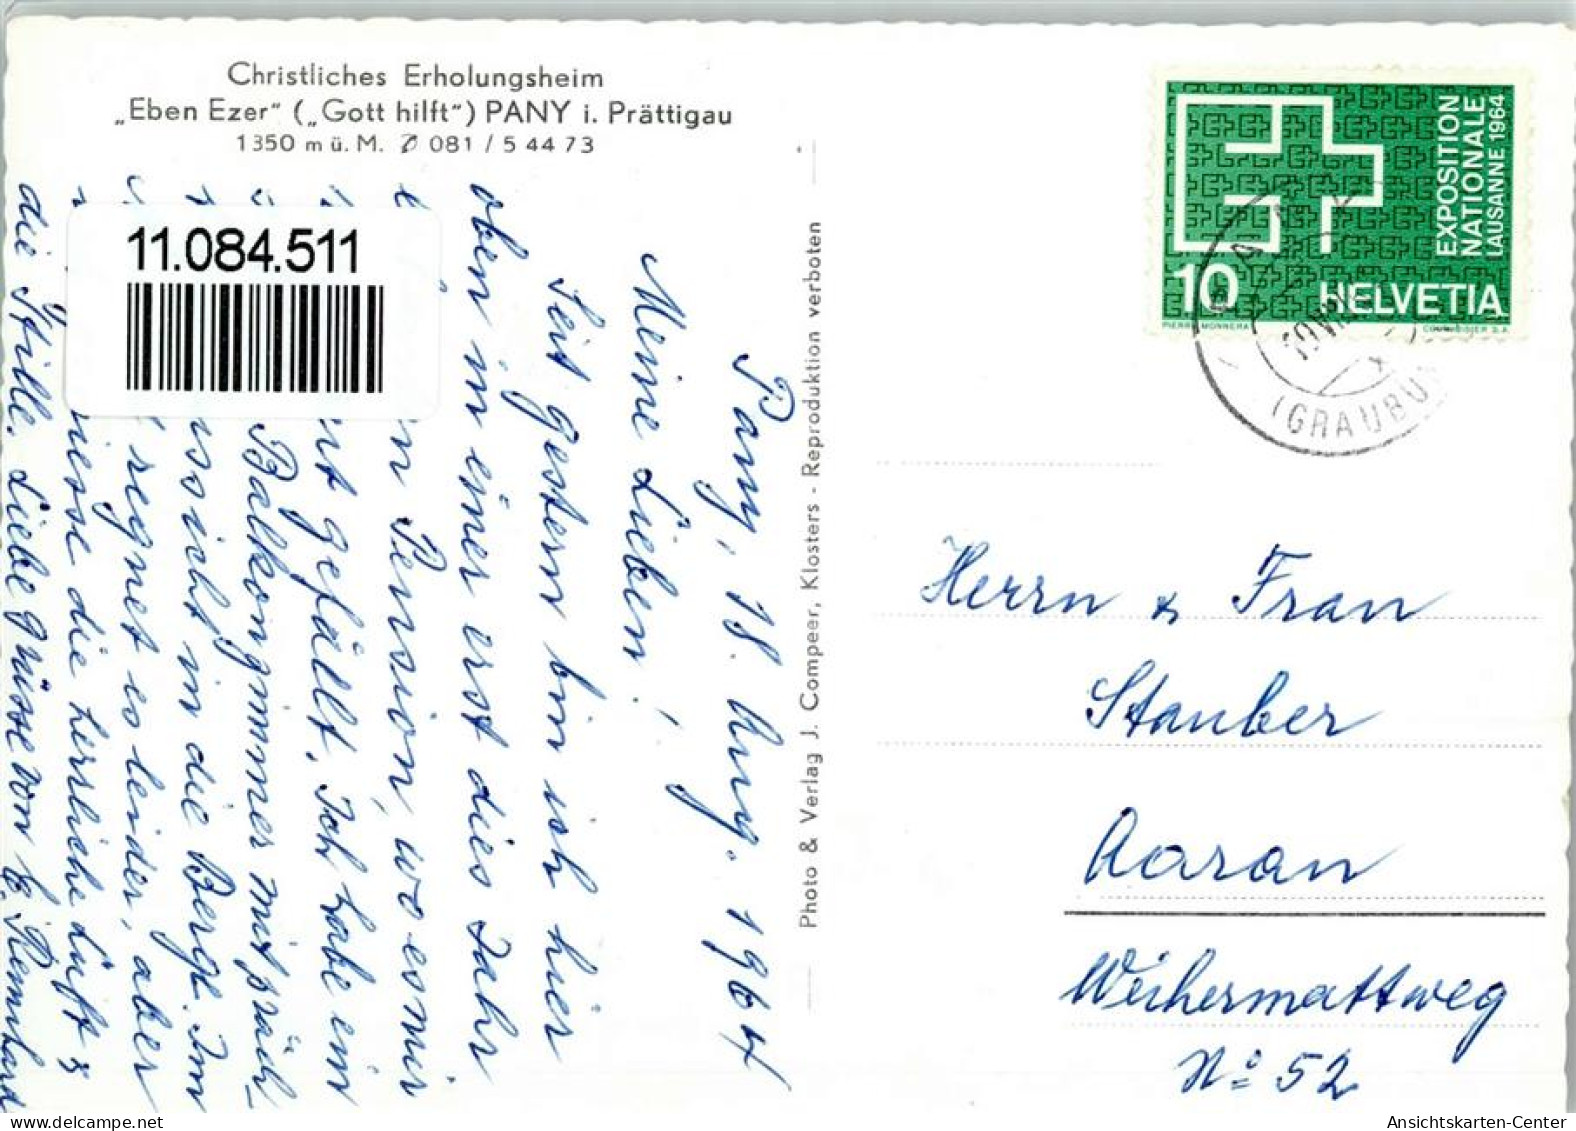 Christliches Erholungsheim
„Eben Ezer" („Gott hilft") PANY i. Prättigau
1350 m ü. M. 081 / 5 44 73
11.084.511
Pany, 18. Aug. 1964
Meine Lieben!
Seit gestern bin ich hier
oben in einer erst dies Jahr
Pension, wo es mir
gefällt. Ich habe ein
Balkonzimmer mit präch-
in die Bergl. Im
regnet es leider, aber
die herrliche Luft &
die Stille. Liebe Grüsse von
Photo & Verlag J. Compeer, Klosters - Reproduktion verboten
EXPOSITION
NATIONALE
LAUSANNE 1964
10 HELVETIA
PIERRE MONNERAT
COURVOISIER S.A.
(GRAUBÜ
Herrn & Frau
Stauber
Aarau
Weihermattweg
No 52
Ansichtskarten-Center